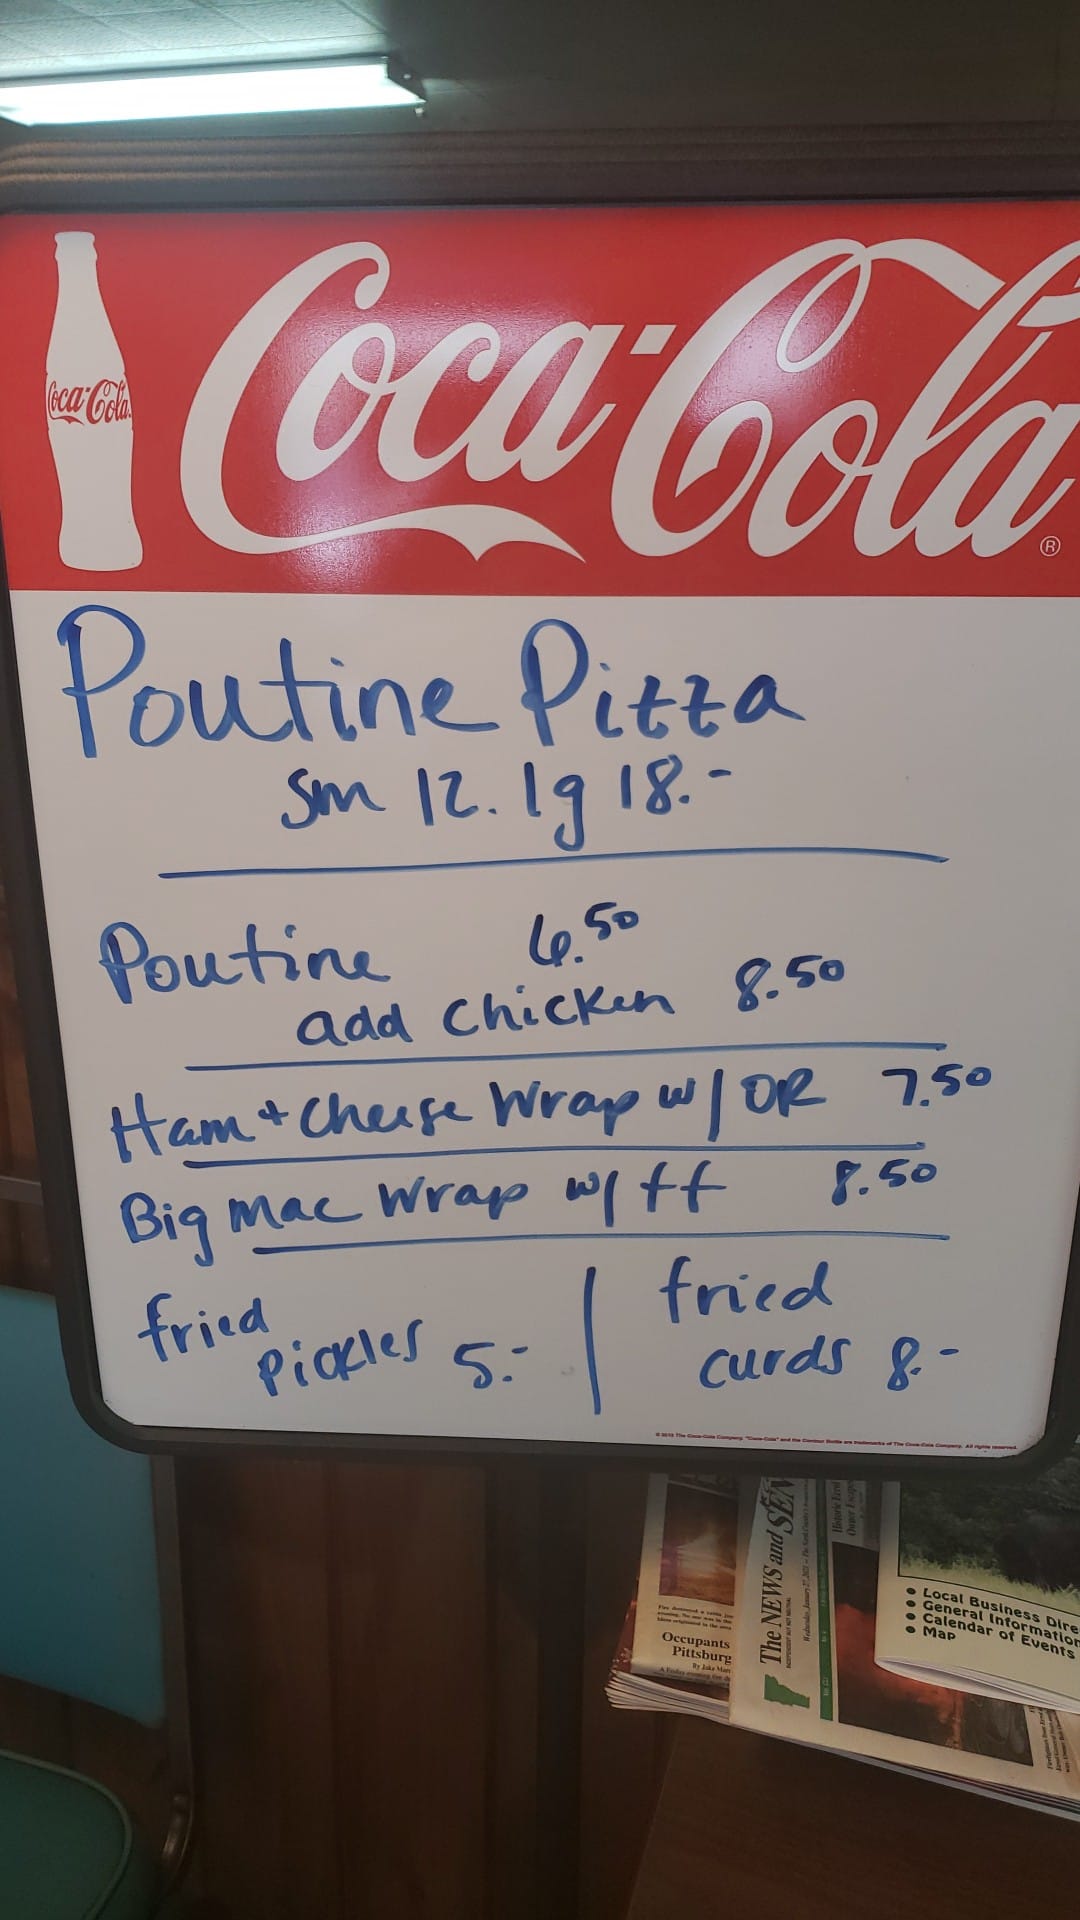 Coca-Cola
Coca-Cola®
Poutine Pizza
sm 12. lg 18.-
Poutine 6.50
add chicken 8.50
Ham + Cheese Wrap w/ OR 7.50
Big Mac Wrap w/ ff 8.50
fried
pickles 5.-
fried
curds 8.-
© 2010 The Coca-Cola Company. "Coca-Cola" and the Contour Bottle are trademarks of The Coca-Cola Company. All rights reserved.
Occupants
Pittsburg
By Jake Mar
The NEWS and SEN
Wednesday, January 27, 2021
Local Business Dire
General Information
Calendar of Events
Map